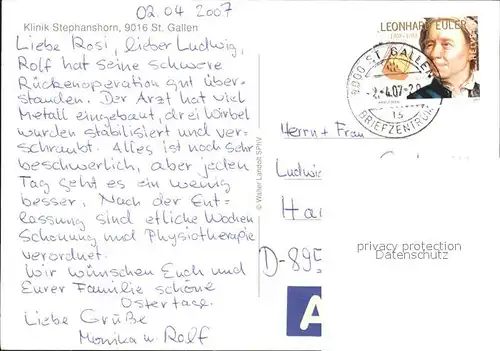 02.04 2007
Klinik Stephanshorn, 9016 St. Gallen
Liebe Rosi, lieber Ludwig,
Rolf hat seine schwere
Rückenoperation gut über-
standen. Der Arzt hat viel
Metall eingebaut, drei Wirbel
wurden stabilisiert und ver-
schraubt. Alles ist noch sehr
beschwerlich, aber jeden
Tag geht es ein wenig
besser. Nach der Ent-
lassung sind etliche Wochen
Schonung und Physiotherapie
verordnet.
Wir wünschen Euch und
Eurer Familie schöne
Ostertage.
Liebe Grüße
Monika u. Rolf
© Walter Landolt SPhV
LEONHARD EULER
1707-1783
9000 ST. GALLEN
BRIEFZENTRUM
Herrn + Frau
Ludwig
Ha
D-895
A
privacy protection
Datenschutz